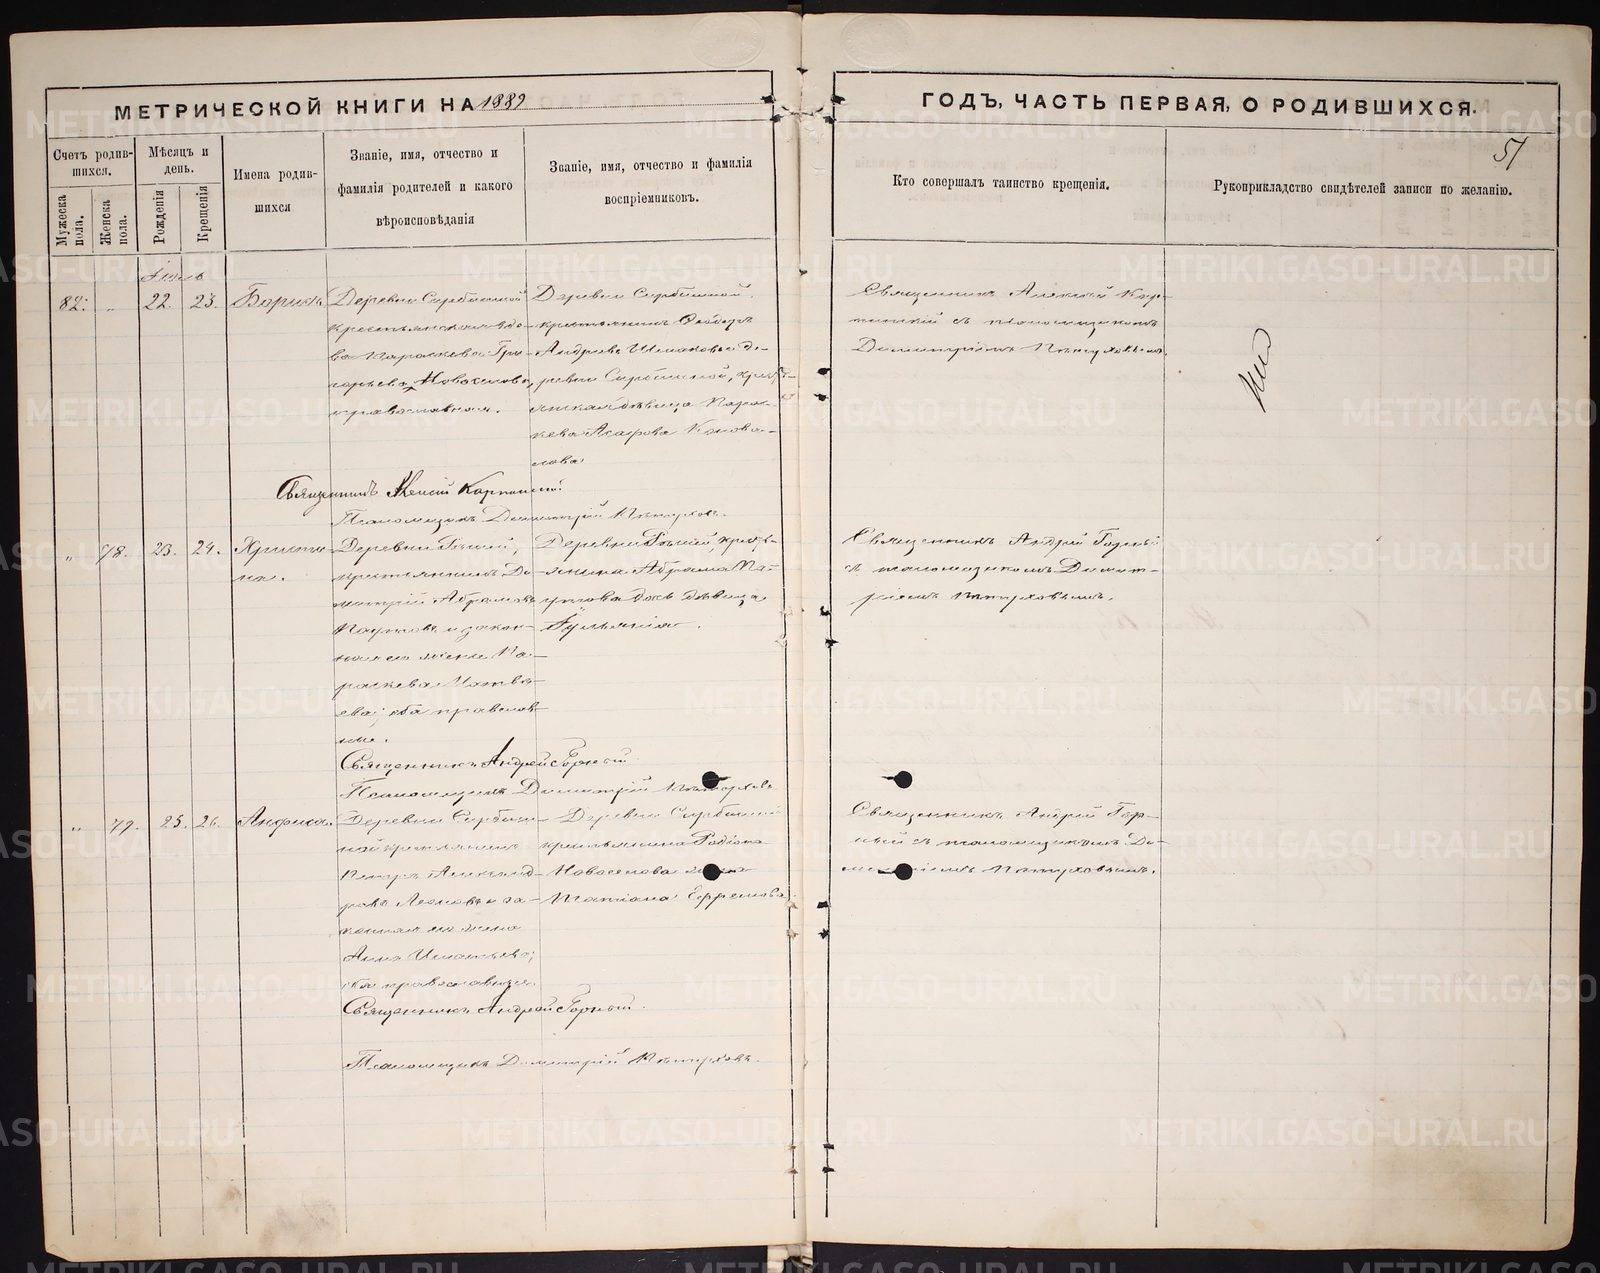 МЕТРИЧЕСКОЙ КНИГИ НА 1889
ГОДЪ, ЧАСТЬ ПЕРВАЯ, О РОДИВШИХСЯ.
51
Счетъ родив-
шихся.
Мужеска
пола.
Женска
пола.
Мѣсяцъ и
день.
Рожденія
Крещенія
Имена родив-
шихся
Званіе, имя, отчество и
фамилія родителей и какого
вѣроисповѣданія
Званіе, имя, отчество и фамилія
воспріемниковъ.
Кто совершалъ таинство крещенія.
Рукоприкладство свидѣтелей записи по желанію.
Іюль
82. „ 22. 23. Борисъ
Деревни
крестьянская вдо-
ва Параскева Гри-
горьева Новоселова,
православная.
Деревни
крестьянинъ Ѳеодоръ
Андреевъ и де-
ревни
дѣвица Парас-
кева Конова-
лова
Священникъ Алексій
съ псаломщикомъ
Димитріемъ Пѣтуховымъ.
Священникъ Алексій
Псаломщикъ Димитрій Пѣтуховъ.
„ 78. 23. 24. Христи-
на.
Деревни
крестьянинъ Ди-
митрій Абрамовъ
Паутовъ и закон-
ная его жена Па-
раскева Матвѣ-
ева; оба православ-
ные.
Деревни
Абрама Па-
утова дочь дѣвица
Іульянія.
Священникъ Андрей Горный
съ псаломщикомъ Димит-
ріемъ Пѣтуховымъ.
Священникъ Андрей Горный
Псаломщикъ Димитрій Пѣтуховъ
„ 79. 25. 26. Анфиса.
Деревни
крестьянинъ
Петръ Александ-
ровъ Леоновъ и за-
конная его жена
Анна Игнатьева;
оба православные.
Деревни
крестьянина Родіона
Новоселова жена
Татіана Ефремова
Священникъ Андрей Гор-
ный съ псаломщикомъ Ди-
митріемъ Пѣтуховымъ.
Священникъ Андрей Горный.
Псаломщикъ Димитрій Пѣтуховъ.
METRIKI.GASO-URAL.RU